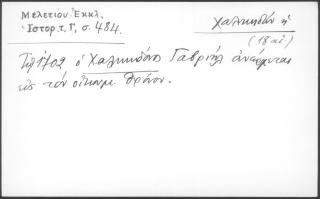 Μελετίου Ἐκκλ.
Ἱστορ. τ. Γ, σ. 484.
Χαλκηδών ἡ
(18 αἰ)
Τῷ 1702 ὁ Χαλκηδόνος Γαβριήλ ἀνέρχεται
εἰς τόν οἰκουμ. θρόνον.